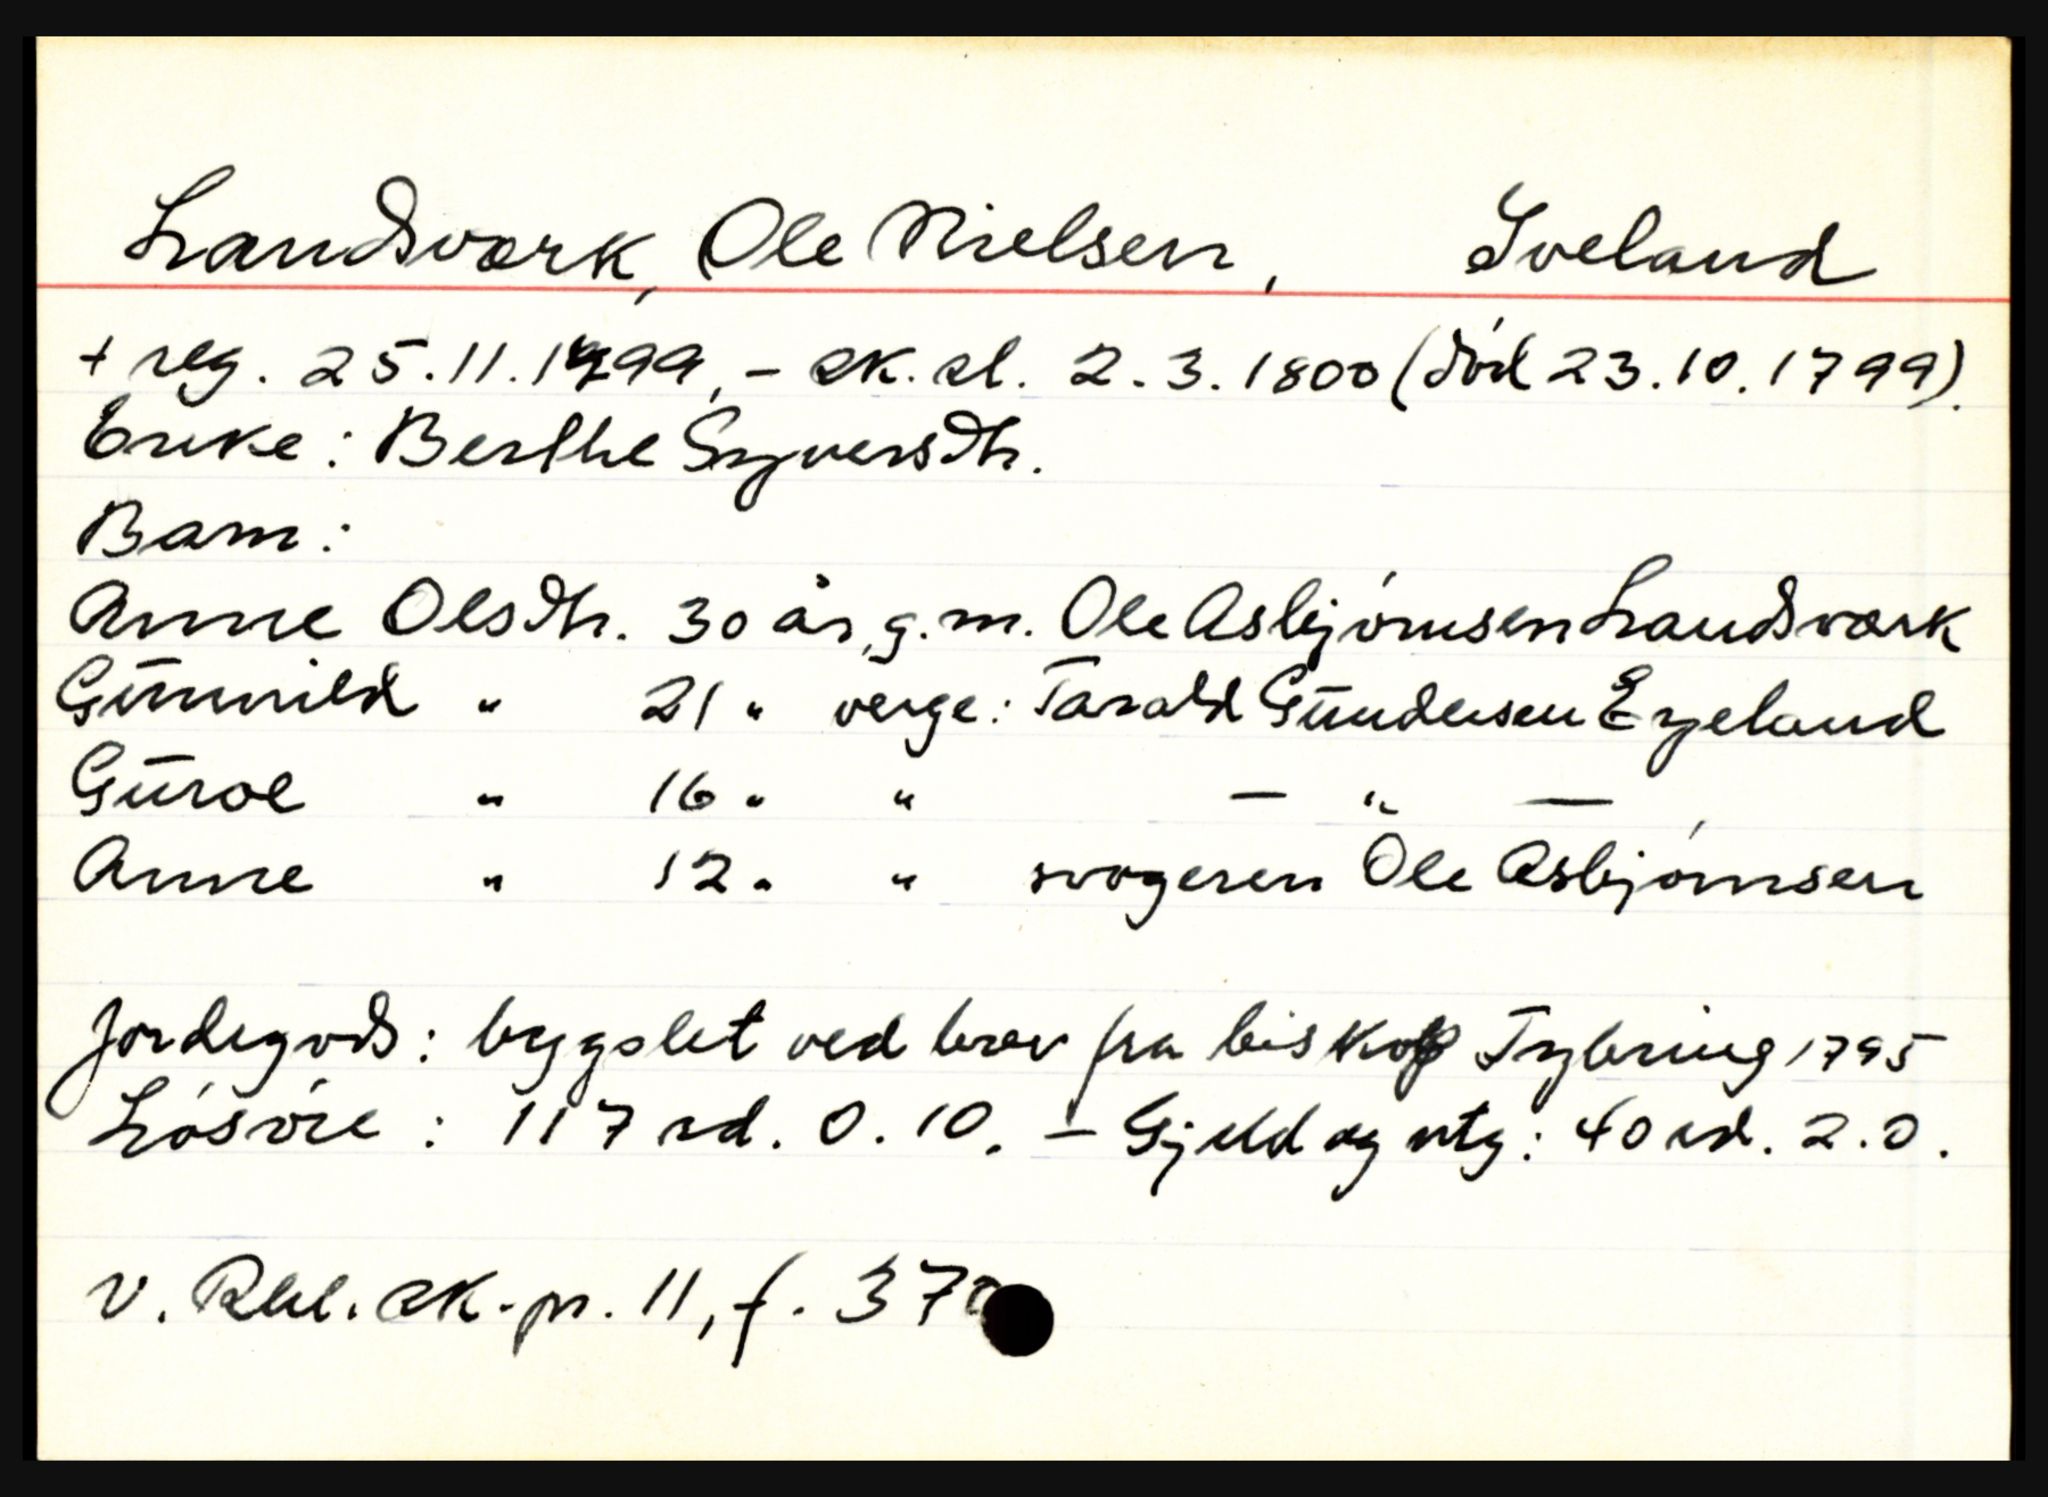 Landsværk, Ole Nielsen, Iveland
+ reg. 25.11.1799, - sk.sl. 2.3.1800 (död 23.10.1799).
Enke: Berthe Syversdtr.
Barn:
Anne Olsdtr. 30 år, g.m. Ole Asbjörnsen Landsværk
Gunnild " 21 " verge: Tarald Gundersen Eyeland
Guroe " 16 " " — " —
Anne " 12 " " svogeren Ole Asbjörnsen
Jordegods: bygslet ved brev fra biskop Tybring 1795
Lösöre: 117 rd. 0.10. - Gjeld og utg: 40 rd. 2.0.
V. Rbl. sk.pr. 11, f. 37